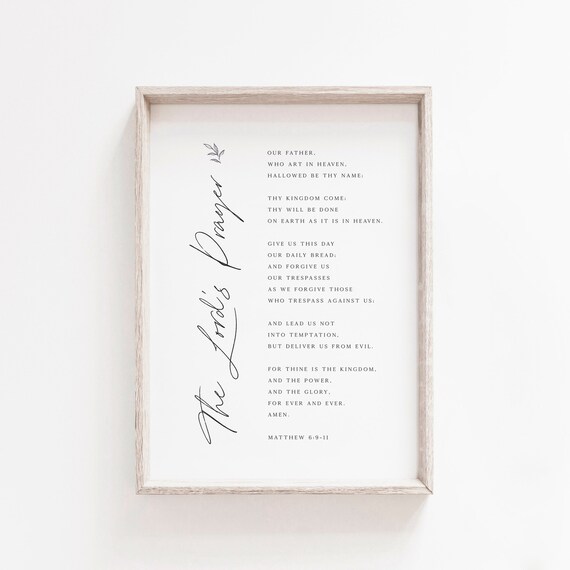 The Lord's Prayer
OUR FATHER,
WHO ART IN HEAVEN,
HALLOWED BE THY NAME;
THY KINGDOM COME;
THY WILL BE DONE
ON EARTH AS IT IS IN HEAVEN.
GIVE US THIS DAY
OUR DAILY BREAD;
AND FORGIVE US
OUR TRESPASSES
AS WE FORGIVE THOSE
WHO TRESPASS AGAINST US;
AND LEAD US NOT
INTO TEMPTATION,
BUT DELIVER US FROM EVIL.
FOR THINE IS THE KINGDOM,
AND THE POWER,
AND THE GLORY,
FOR EVER AND EVER.
AMEN.
MATTHEW 6:9-11